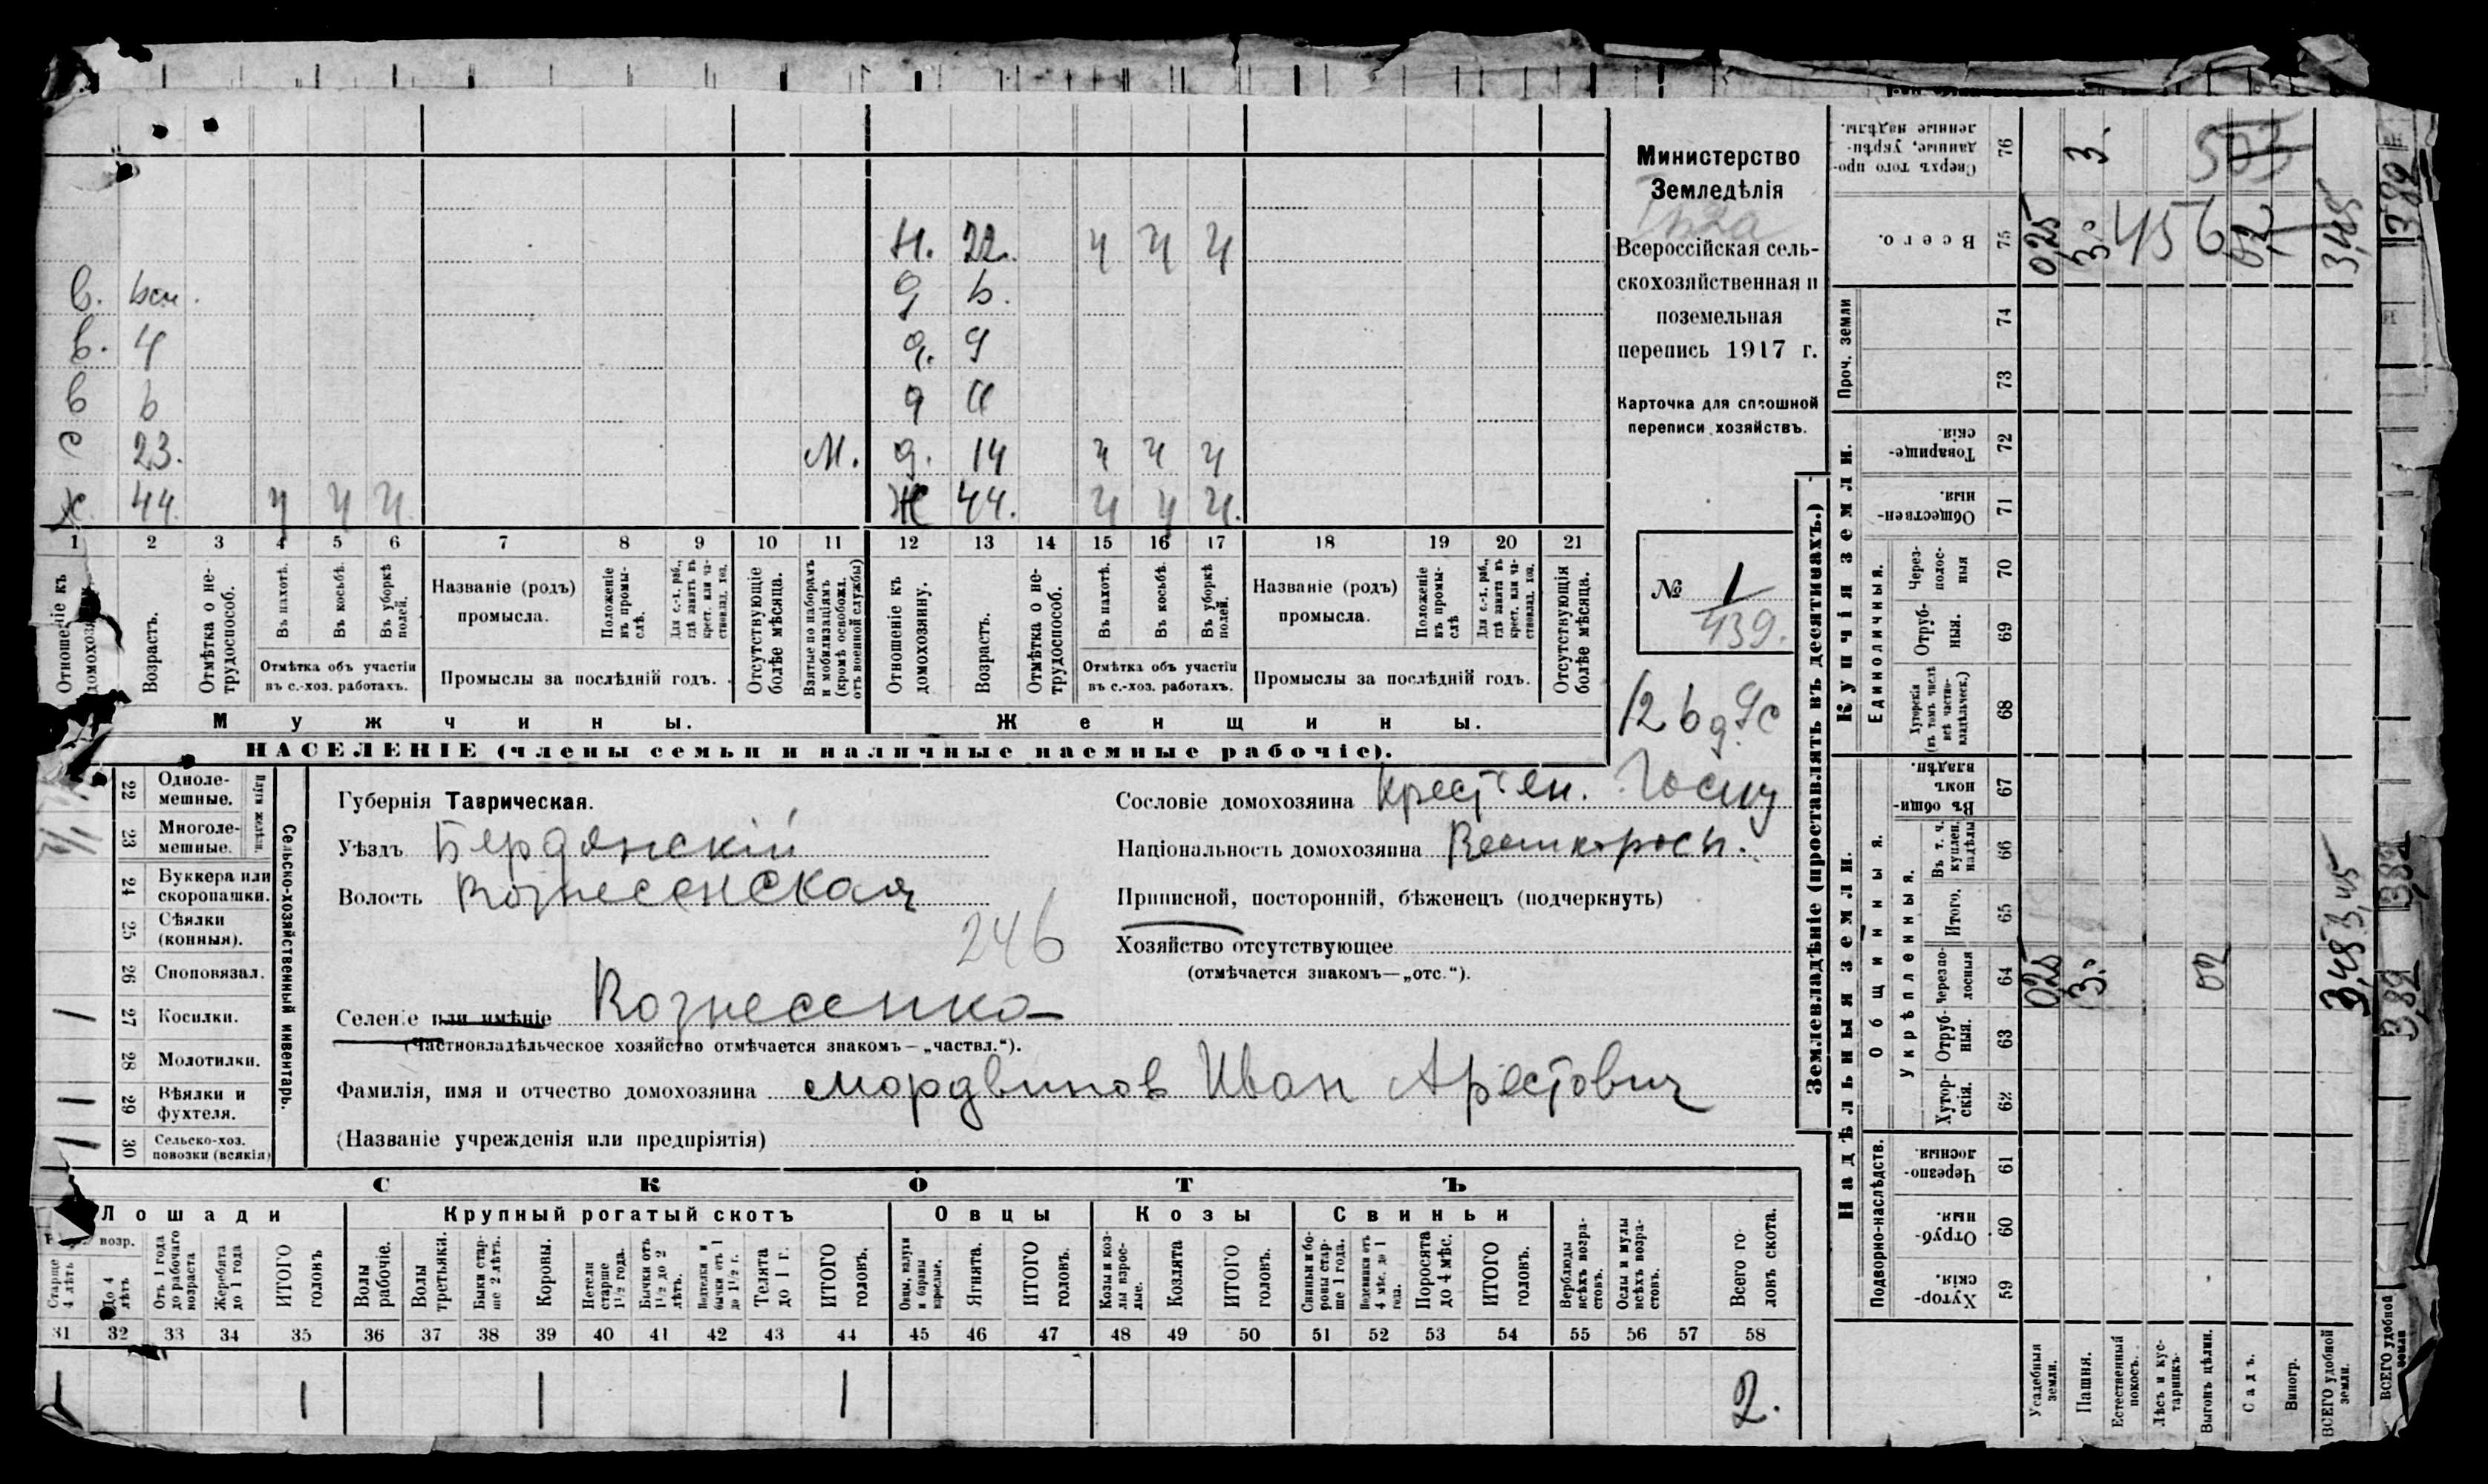 Министерство
Земледѣлія
Всероссійская сель-
скохозяйственная и
поземельная
перепись 1917 г.
Карточка для сплошной
переписи хозяйствъ.
№ 1
439.
Н. 22. ч ч ч
в. 6 д 6.
в. 4 д. 9
в 6 д 11
с 23. М. д. 14 ч ч ч
х. 44. ч ч ч Ж 44. ч ч ч.
1 2 3 4 5 6 7 8 9 10 11 12 13 14 15 16 17 18 19 20 21
Отношеніе къ домохозяину.
Возрастъ.
Отмѣтка о не-трудоспособ.
Въ пахотѣ.
Въ косьбѣ.
Въ уборкѣ полей.
Отмѣтка объ участіи въ с.-хоз. работахъ.
Названіе (родъ) промысла.
Положеніе въ промы-слѣ.
Для с.-х. раб., гдѣ занятъ въ крест. или ча-стновлад. хоз.
Промыслы за послѣдній годъ.
Отсутствующіе болѣе мѣсяца.
Взятые по наборамъ и мобилизаціямъ (кромѣ освобожд. отъ военной службы)
Отношеніе къ домохозяину.
Возрастъ.
Отмѣтка о не-трудоспособ.
Въ пахотѣ.
Въ косьбѣ.
Въ уборкѣ полей.
Отмѣтка объ участіи въ с.-хоз. работахъ.
Названіе (родъ) промысла.
Положеніе въ промы-слѣ
Для с.-х. раб., гдѣ занятъ въ крест. или ча-стновлад. хоз.
Промыслы за послѣдній годъ.
Отсутствующія болѣе мѣсяца.
Мужчины.
Женщины.
НАСЕЛЕНІЕ (члены семьи и наличные наемные рабочіе).
Губернія Таврическая.
Уѣздъ Бердянскій
Волость Вознесенская
246
Селеніе или имѣніе Вознесенка
(Частновладѣльческое хозяйство отмѣчается знакомъ—„частвл.“).
Фамилія, имя и отчество домохозяина Мордвинов Иван Арестович
(Названіе учрежденія или предпріятія)
Сословіе домохозяина Крестен.
Національность домохозяина Великоросъ.
Приписной, посторонній, бѣженецъ (подчеркнуть)
Хозяйство отсутствующее
(отмѣчается знакомъ—„отс.“).
Сельско-хозяйственный инвентарь.
Плуги желѣзн.
22 Одноле-мешные.
23 Многоле-мешные.
24 Буккера или скоропашки.
25 Сѣялки (конныя).
26 Сноповязал.
27 Косилки. 1
28 Молотилки.
29 Вѣялки и фухтеля. 1
30 Сельско-хоз. повозки (всякія) 1
СКОТЪ
Лошади
Крупный рогатый скотъ
Овцы
Козы
Свиньи
возр.
Старше 4 лѣтъ
До 4 лѣтъ
Отъ 1 года до рабочаго возраста
Жеребята до 1 года
ИТОГО головъ
Волы рабочіе.
Волы третьяки.
Быки стар-ше 2 лѣтъ.
Коровы.
Нетели старше 1½ года.
Бычки отъ 1½ до 2 лѣтъ.
Подтелки и бычки отъ 1 до 1½ г.
Телята до 1 г.
ИТОГО головъ.
Овцы, валухи и бараны взрослые.
Ягнята.
ИТОГО головъ.
Козы и коз-лы взрос-лые.
Козлята
ИТОГО головъ.
Свиньи и бо-ровы стар-ше 1 года.
Подсвинки отъ 4 мѣс. до 1 года.
Поросята до 4 мѣс.
ИТОГО головъ.
Верблюды всѣхъ возра-стовъ.
Ослы и мулы всѣхъ возра-стовъ.
Всего го-ловъ скота.
31 32 33 34 35 36 37 38 39 40 41 42 43 44 45 46 47 48 49 50 51 52 53 54 55 56 57 58
1 1 1 1 2.
Землевладѣніе (проставлять въ десятинахъ.)
Надѣльныя земли.
Купчія земли.
Проч. земли
Подворно-наслѣдств.
Общинныя.
Укрѣпленныя.
Единоличныя.
59 Хутор-скія.
60 Отруб-ныя.
61 Черезпо-лосныя
62 Хутор-скія.
63 Отруб-ныя.
64 Черезпо-лосныя 0,25 3.0 02 3,48 3,82
65 Итого.
66 Въ т. ч. куплен. надѣлы
67 Въ общи-номъ владѣн.
68 Хуторскія (въ томъ числѣ всѣ частно-владѣльческ.)
69 Отруб-ныя.
70 Через-полос-ныя
71 Обществен-ныя.
72 Товарище-скія.
73
74
75 Всего. 0,25 3.0 456
76 Сверхъ того про-данные, укрѣп-ленные надѣлы. 3. 503
Усадебныя земли.
Пашня.
Естественный покосъ.
Лѣсъ и кус-тарникъ.
Выгонъ цѣлин.
Садъ.
Виногр.
ВСЕГО удобной земли.
ВСЕГО удобной земли